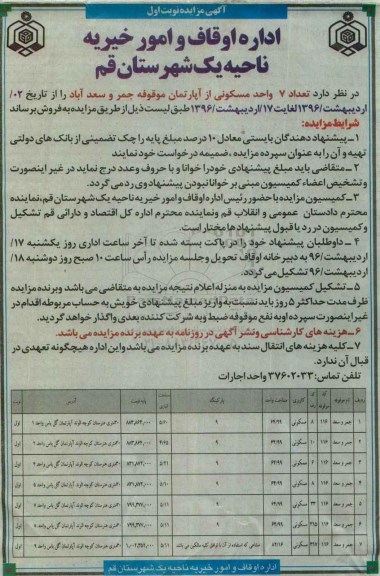 آگهی مزایده نوبت اول
اداره اوقاف و امور خیریه
ناحیه یک شهرستان قم
در نظر دارد تعداد ۷ واحد مسکونی از آپارتمان موقوفه جمر و سعد آباد را از تاریخ ۰۲/
اردیبهشت/۱۳۹۶ لغایت ۱۷/اردیبهشت/۱۳۹۶ طبق لیست ذیل از طریق مزایده به فروش برساند
شرایط مزایده:
۱ ـ پیشنهاد دهندگان بایستی معادل ۱۰ درصد مبلغ پایه را چک تضمینی از بانک های دولتی
تهیه و آن را به عنوان سپرده مزایده ، ضمیمه درخواست خود نمایند
۲ ـ متقاضی باید مبلغ پیشنهادی خود را خوانا و با حروف وعدد درج نماید در غیر اینصورت
و تشخیص اعضاء کمیسیون مبنی بر خوانا نبودن پیشنهاد وی رد می گردد.
۳ ـ کمیسیون مزایده با حضور رئیس اداره اوقاف و امور خیریه ناحیه یک شهرستان قم، نماینده
محترم دادستان عمومی و انقلاب قم ونماینده محترم اداره کل اقتصاد و دارائی قم تشکیل
و کمیسیون در رد یا قبول پیشنهادها مختار است.
۴ ـ داوطلبان پیشنهاد خود را در پاکت بسته شده تا آخر ساعت اداری روز یکشنبه ۱۷/
اردیبهشت/۹۶ به دبیرخانه اوقاف تحویل و جلسه مزایده رأس ساعت ۱۰ صبح روز دوشنبه ۱۸/
اردیبهشت/۹۶ تشکیل می گردد.
۵ ـ تشکیل کمیسیون مزایده به منزله اعلام نتیجه مزایده به متقاضی می باشد و برنده مزایده
ظرف مدت حداکثر ۵ روز باید نسبت به واریز مبلغ پیشنهادی خویش به حساب مربوطه اقدام در
غیر اینصورت سپرده او به نفع موقوفه ضبط و به شرکت کننده بعدی واگذار خواهد گردید.
۶ ـ هزینه های کارشناسی و نشر آگهی در روزنامه به عهده برنده مزایده می باشد.
۷ ـ کلیه هزینه های انتقال سند به عهده برنده مزایده می باشد و این اداره هیچگونه تعهدی در
قبال آن ندارد.
تلفن تماس: ۳۷۶۰۲۰۳۳ واحد اجارات
ردیف نام موقوفه کاربری مساحت واحد پارکینگ قیمت پایه آدرس نوبت
۱ جمر و سعد ۱۱۶ ۸ مسکونی ۶۴/۹۹
۲ جمر و سعد ۱۱۶ ۱۰ مسکونی ۶۴/۹۹
۳ جمر و سعد ۱۱۶ مسکونی ۶۴/۹۹
۴ جمر و سعد ۱۱۶ مسکونی ۶۴/۹۹
۵ جمر و سعد ۱۱۶ مسکونی ۶۴/۹۹
۶ جمر و سعد ۱۱۶ مسکونی ۶۴/۹۹
۷ جمر و سعد ۱۱۶ مسکونی
اداره اوقاف و امور خیریه ناحیه یک شهرستان قم